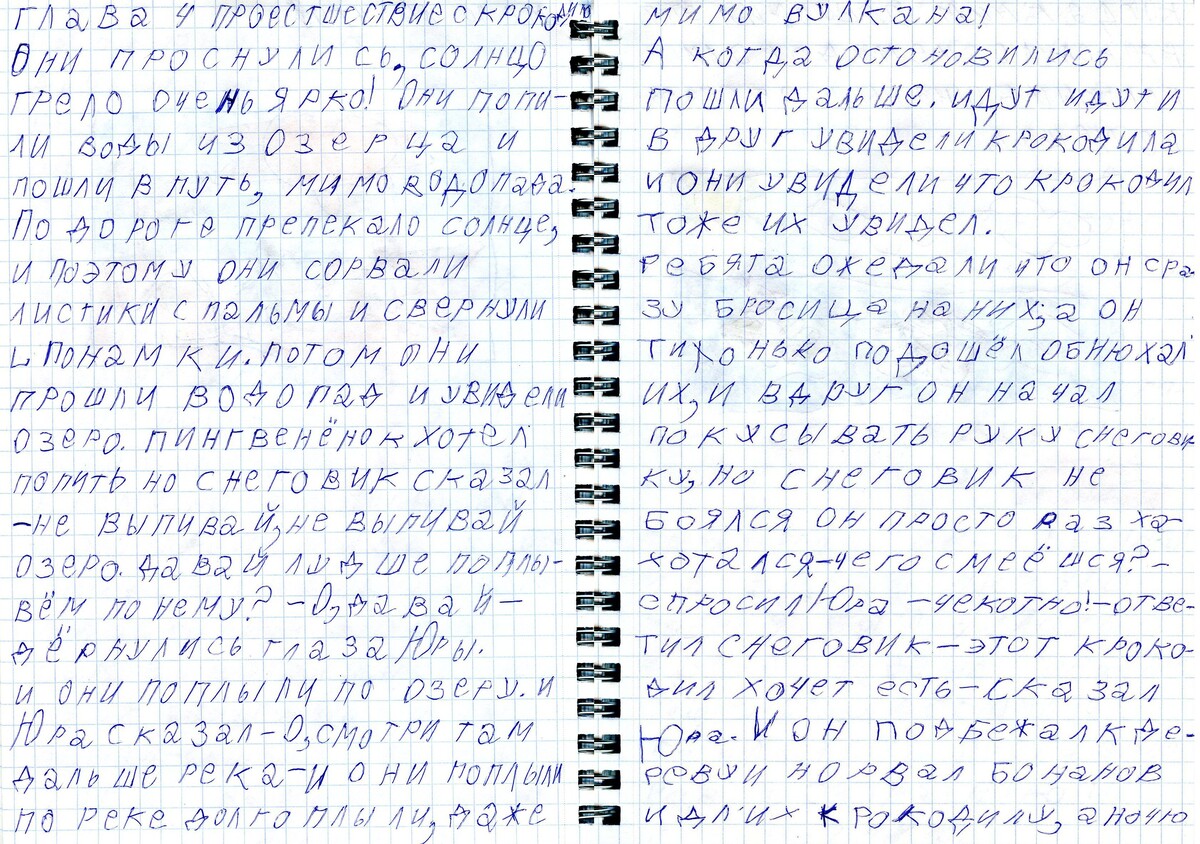 ГЛАВА 4 ПРОЕСТШЕСТВИЕ С КРОКОДИЛО
ОНИ ПРОСНУЛИСЬ, СОЛНЦО
ГРЕЛО ОЧЕНЬ ЯРКО! ОНИ ПОПИ-
ЛИ ВОДЫ ИЗ ОЗЕРЦА И
ПОШЛИ В ПУТЬ, МИМО ВОДОПАДА.
ПО ДОРОГЕ ПРЕПЕКАЛО СОЛНЦЕ,
И ПОЭТОМУ ОНИ СОРВАЛИ
ЛИСТИКИ С ПАЛЬМЫ И СВЕРНУЛИ
ЦПОНАМКИ. ПОТОМ ОНИ
ПРОШЛИ ВОДОПАД И УВИДЕЛИ
ОЗЕРО. ПИНГВЕНЁНОК ХОТЕЛ
ПОПИТЬ НО СНЕГОВИК СКАЗАЛ
-НЕ ВЫПИВАЙ, НЕ ВЫПИВАЙ
ОЗЕРО. ДАВАЙ ЛУДШЕ ПОПЛЫ-
ВЁМ ПО НЕМУ? -О, ДАВАЙ-
ДЁРНУЛИСЬ ГЛАЗА ЮРЫ.
И ОНИ ПОПЛЫЛИ ПО ОЗЕРУ. И
ЮРА СКАЗАЛ-О, СМОТРИ ТАМ
ДАЛЬШЕ РЕКА-И ОНИ ПОПЛЫЛИ
ПО РЕКЕ ДОЛГО ПЛЫЛИ, ДАЖЕ
МИМО ВУЛКАНА!
А КОГДА ОСТОНОВИЛИСЬ
ПОШЛИ ДАЛЬШЕ. ИДУТ ИДУТ И
В ДРУГ УВИДЕЛИ КРОКОДИЛА
И ОНИ УВИДЕЛИ ЧТО КРОКОДИЛ
ТОЖЕ ИХ УВИДЕЛ.
РЕБЯТА ОЖЕДАЛИ ЧТО ОН СРА-
ЗУ БРОСИЦА НА НИХ, А ОН
ТИХОНЬКО ПОДОШЁЛ ОБНЮХАЛ
ИХ, И ВДРУГ ОН НАЧАЛ
ПОКУСЫВАТЬ РУКУ СНЕГОВИ
КУ, НО СНЕГОВИК НЕ
БОЯЛСЯ ОН ПРОСТО РАЗХА-
ХОТАЛСЯ-ЧЕГО СМЕЁШСЯ?-
СПРОСИЛ ЮРА -ЧЕКОТНО!-ОТВЕ-
ТИЛ СНЕГОВИК-ЭТОТ КРОКО-
ДИЛ ХОЧЕТ ЕСТЬ-СКАЗАЛ
ЮРА. И ОН ПОДБЕЖАЛ К ДЕ-
РЕВУ И НОРВАЛ БОНАНОВ
И ДЛ ИХ КРОКОДИЛУ, А НОЧЮ